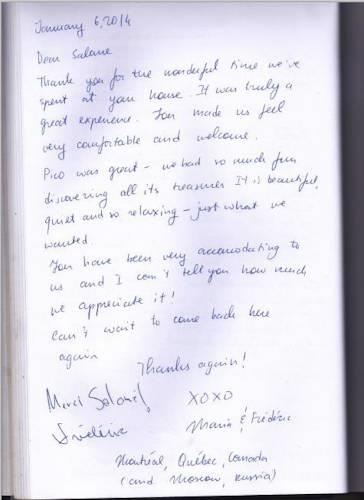 January 6, 2014
Dear Salome
Thank you for the wonderful time we've
spent at your house. It was truly a
great experience. You made us feel
very comfortable and welcome.
Pico was great - we had so much fun
discovering all its treasures It is beautiful,
quiet and so relaxing - just what we
wanted.
You have been very accomodating to
us and I can't tell you how much
we appreciate it!
Can't wait to come back here
again
Thanks again!
Merci Salomé!
XOXO
Frédéric
Maria & Frédéric
Montréal, Québec, Canada
(and Moscow, Russia)